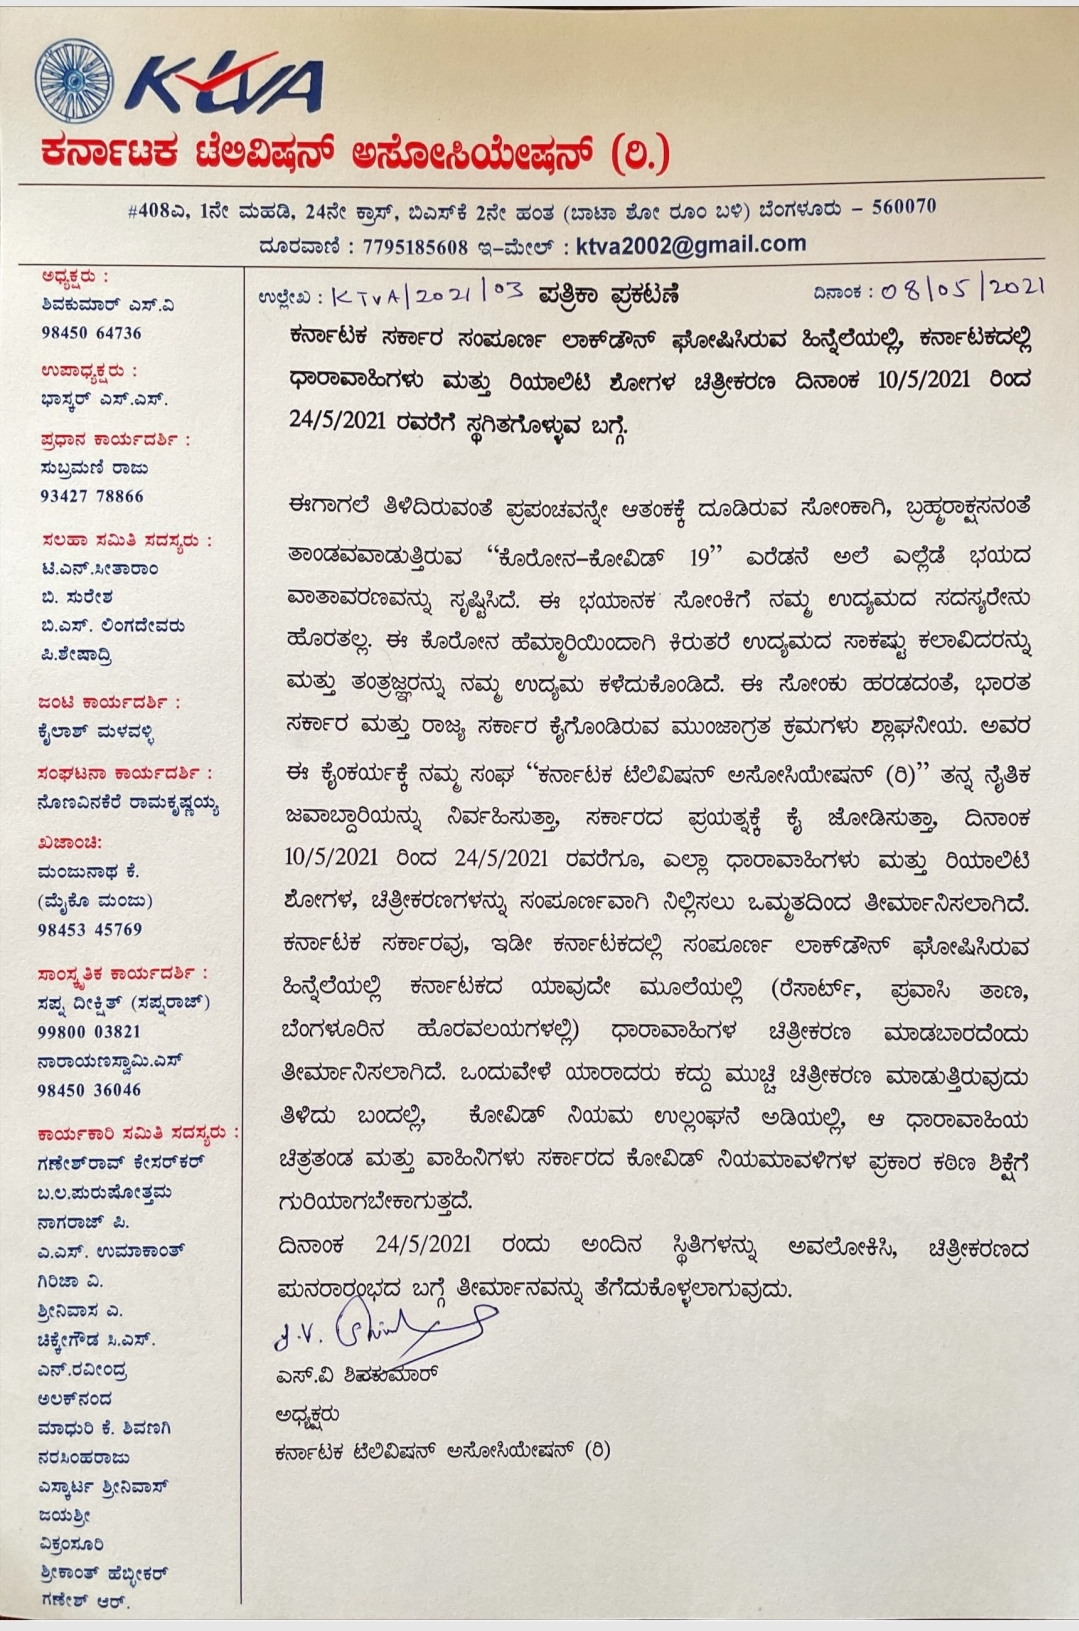 KtVA
ಕರ್ನಾಟಕ ಟೆಲಿವಿಷನ್ ಅಸೋಸಿಯೇಷನ್ (ರಿ.)
#408ಎ, 1ನೇ ಮಹಡಿ, 24ನೇ ಕ್ರಾಸ್, ಬಿಎಸ್‌ಕೆ 2ನೇ ಹಂತ (ಬಾಟಾ ಶೋ ರೂಂ ಬಳಿ) ಬೆಂಗಳೂರು – 560070
ದೂರವಾಣಿ : 7795185608 ಇ–ಮೇಲ್ : ktva2002@gmail.com
ಅಧ್ಯಕ್ಷರು :
ಶಿವಕುಮಾರ್ ಎಸ್.ವಿ
98450 64736
ಉಪಾಧ್ಯಕ್ಷರು :
ಭಾಸ್ಕರ್ ಎಸ್.ಎಸ್.
ಪ್ರಧಾನ ಕಾರ್ಯದರ್ಶಿ :
ಸುಬ್ರಮಣಿ ರಾಜು
93427 78866
ಸಲಹಾ ಸಮಿತಿ ಸದಸ್ಯರು :
ಟಿ.ಎನ್.ಸೀತಾರಾಂ
ಬಿ. ಸುರೇಶ
ಬಿ.ಎಸ್. ಲಿಂಗದೇವರು
ಪಿ.ಶೇಷಾದ್ರಿ
ಜಂಟಿ ಕಾರ್ಯದರ್ಶಿ :
ಕೈಲಾಶ್ ಮಳವಳ್ಳಿ
ಸಂಘಟನಾ ಕಾರ್ಯದರ್ಶಿ :
ನೊಣವಿನಕೆರೆ ರಾಮಕೃಷ್ಣಯ್ಯ
ಖಜಾಂಚಿ:
ಮಂಜುನಾಥ ಕೆ.
(ಮೈಕೊ ಮಂಜು)
98453 45769
ಸಾಂಸ್ಕೃತಿಕ ಕಾರ್ಯದರ್ಶಿ :
ಸಪ್ನ ದೀಕ್ಷಿತ್ (ಸಪ್ನರಾಜ್)
99800 03821
ನಾರಾಯಣಸ್ವಾಮಿ.ಎಸ್
98450 36046
ಕಾರ್ಯಕಾರಿ ಸಮಿತಿ ಸದಸ್ಯರು :
ಗಣೇಶ್‌ರಾವ್ ಕೇಸರ್‌ಕರ್
ಬ.ಲ.ಪುರುಷೋತ್ತಮ
ನಾಗರಾಜ್ ಪಿ.
ಎ.ಎಸ್. ಉಮಾಕಾಂತ್
ಗಿರಿಜಾ ವಿ.
ಶ್ರೀನಿವಾಸ ಎ.
ಚಿಕ್ಕೇಗೌಡ ಸಿ.ಎಸ್.
ಎನ್.ರವೀಂದ್ರ
ಅಲಕ್‌ನಂದ
ಮಾಧುರಿ ಕೆ. ಶಿವಣಗಿ
ನರಸಿಂಹರಾಜು
ಎಸ್ಕಾರ್ಟ ಶ್ರೀನಿವಾಸ್
ಜಯಶ್ರೀ
ವಿಕ್ರಂಸೂರಿ
ಶ್ರೀಕಾಂತ್ ಹೆಬ್ಳೀಕರ್
ಗಣೇಶ್ ಆರ್.
ಉಲ್ಲೇಖ : KTVA/2021/03 ಪತ್ರಿಕಾ ಪ್ರಕಟಣೆ ದಿನಾಂಕ : 08/05/2021
ಕರ್ನಾಟಕ ಸರ್ಕಾರ ಸಂಪೂರ್ಣ ಲಾಕ್‌ಡೌನ್ ಘೋಷಿಸಿರುವ ಹಿನ್ನೆಲೆಯಲ್ಲಿ, ಕರ್ನಾಟಕದಲ್ಲಿ
ಧಾರಾವಾಹಿಗಳು ಮತ್ತು ರಿಯಾಲಿಟಿ ಶೋಗಳ ಚಿತ್ರೀಕರಣ ದಿನಾಂಕ 10/5/2021 ರಿಂದ
24/5/2021 ರವರೆಗೆ ಸ್ಥಗಿತಗೊಳ್ಳುವ ಬಗ್ಗೆ.
ಈಗಾಗಲೆ ತಿಳಿದಿರುವಂತೆ ಪ್ರಪಂಚವನ್ನೇ ಆತಂಕಕ್ಕೆ ದೂಡಿರುವ ಸೋಂಕಾಗಿ, ಬ್ರಹ್ಮರಾಕ್ಷಸನಂತೆ
ತಾಂಡವವಾಡುತ್ತಿರುವ “ಕೊರೋನ–ಕೋವಿಡ್ 19” ಎರೆಡನೆ ಅಲೆ ಎಲ್ಲೆಡೆ ಭಯದ
ವಾತಾವರಣವನ್ನು ಸೃಷ್ಟಿಸಿದೆ. ಈ ಭಯಾನಕ ಸೋಂಕಿಗೆ ನಮ್ಮ ಉದ್ಯಮದ ಸದಸ್ಯರೇನು
ಹೊರತಲ್ಲ. ಈ ಕೊರೋನ ಹೆಮ್ಮಾರಿಯಿಂದಾಗಿ ಕಿರುತರೆ ಉದ್ಯಮದ ಸಾಕಷ್ಟು ಕಲಾವಿದರನ್ನು
ಮತ್ತು ತಂತ್ರಜ್ಞರನ್ನು ನಮ್ಮ ಉದ್ಯಮ ಕಳೆದುಕೊಂಡಿದೆ. ಈ ಸೋಂಕು ಹರಡದಂತೆ, ಭಾರತ
ಸರ್ಕಾರ ಮತ್ತು ರಾಜ್ಯ ಸರ್ಕಾರ ಕೈಗೊಂಡಿರುವ ಮುಂಜಾಗ್ರತ ಕ್ರಮಗಳು ಶ್ಲಾಘನೀಯ. ಅವರ
ಈ ಕೈಂಕರ್ಯಕ್ಕೆ ನಮ್ಮ ಸಂಘ “ಕರ್ನಾಟಕ ಟೆಲಿವಿಷನ್ ಅಸೋಸಿಯೇಷನ್ (ರಿ)” ತನ್ನ ನೈತಿಕ
ಜವಾಬ್ದಾರಿಯನ್ನು ನಿರ್ವಹಿಸುತ್ತಾ, ಸರ್ಕಾರದ ಪ್ರಯತ್ನಕ್ಕೆ ಕೈ ಜೋಡಿಸುತ್ತಾ, ದಿನಾಂಕ
10/5/2021 ರಿಂದ 24/5/2021 ರವರೆಗೂ, ಎಲ್ಲಾ ಧಾರಾವಾಹಿಗಳು ಮತ್ತು ರಿಯಾಲಿಟಿ
ಶೋಗಳ, ಚಿತ್ರೀಕರಣಗಳನ್ನು ಸಂಪೂರ್ಣವಾಗಿ ನಿಲ್ಲಿಸಲು ಒಮ್ಮತದಿಂದ ತೀರ್ಮಾನಿಸಲಾಗಿದೆ.
ಕರ್ನಾಟಕ ಸರ್ಕಾರವು, ಇಡೀ ಕರ್ನಾಟಕದಲ್ಲಿ ಸಂಪೂರ್ಣ ಲಾಕ್‌ಡೌನ್ ಘೋಷಿಸಿರುವ
ಹಿನ್ನೆಲೆಯಲ್ಲಿ ಕರ್ನಾಟಕದ ಯಾವುದೇ ಮೂಲೆಯಲ್ಲಿ (ರೆಸಾರ್ಟ್, ಪ್ರವಾಸಿ ತಾಣ,
ಬೆಂಗಳೂರಿನ ಹೊರವಲಯಗಳಲ್ಲಿ) ಧಾರಾವಾಹಿಗಳ ಚಿತ್ರೀಕರಣ ಮಾಡಬಾರದೆಂದು
ತೀರ್ಮಾನಿಸಲಾಗಿದೆ. ಒಂದುವೇಳೆ ಯಾರಾದರು ಕದ್ದು ಮುಚ್ಚಿ ಚಿತ್ರೀಕರಣ ಮಾಡುತ್ತಿರುವುದು
ತಿಳಿದು ಬಂದಲ್ಲಿ, ಕೋವಿಡ್ ನಿಯಮ ಉಲ್ಲಂಘನೆ ಅಡಿಯಲ್ಲಿ, ಆ ಧಾರಾವಾಹಿಯ
ಚಿತ್ರತಂಡ ಮತ್ತು ವಾಹಿನಿಗಳು ಸರ್ಕಾರದ ಕೋವಿಡ್ ನಿಯಮಾವಳಿಗಳ ಪ್ರಕಾರ ಕಠಿಣ ಶಿಕ್ಷೆಗೆ
ಗುರಿಯಾಗಬೇಕಾಗುತ್ತದೆ.
ದಿನಾಂಕ 24/5/2021 ರಂದು ಅಂದಿನ ಸ್ಥಿತಿಗಳನ್ನು ಅವಲೋಕಿಸಿ, ಚಿತ್ರೀಕರಣದ
ಪುನರಾರಂಭದ ಬಗ್ಗೆ ತೀರ್ಮಾನವನ್ನು ತೆಗೆದುಕೊಳ್ಳಲಾಗುವುದು.
ಎಸ್.ವಿ ಶಿವಕುಮಾರ್
ಅಧ್ಯಕ್ಷರು
ಕರ್ನಾಟಕ ಟೆಲಿವಿಷನ್ ಅಸೋಸಿಯೇಷನ್ (ರಿ)